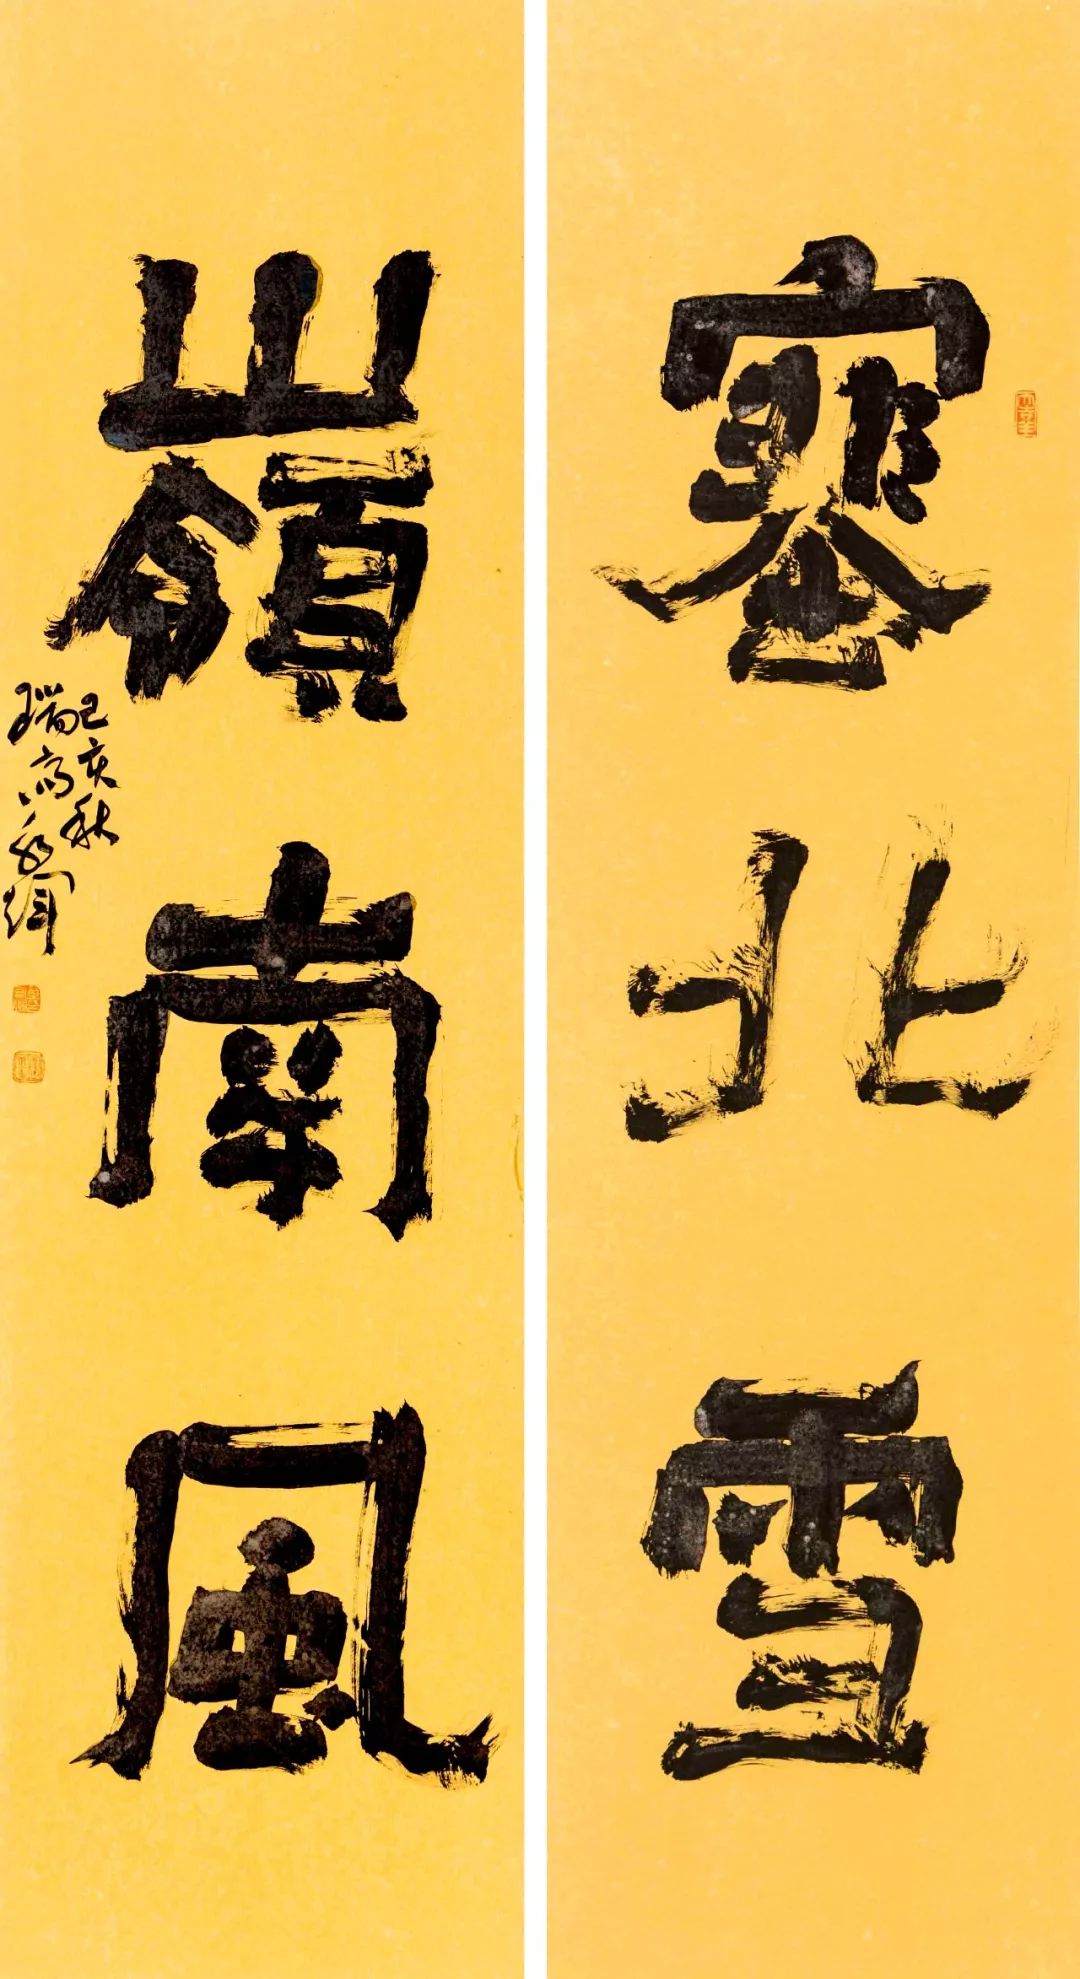 塞北雪
嶺南風
己亥秋
瑞